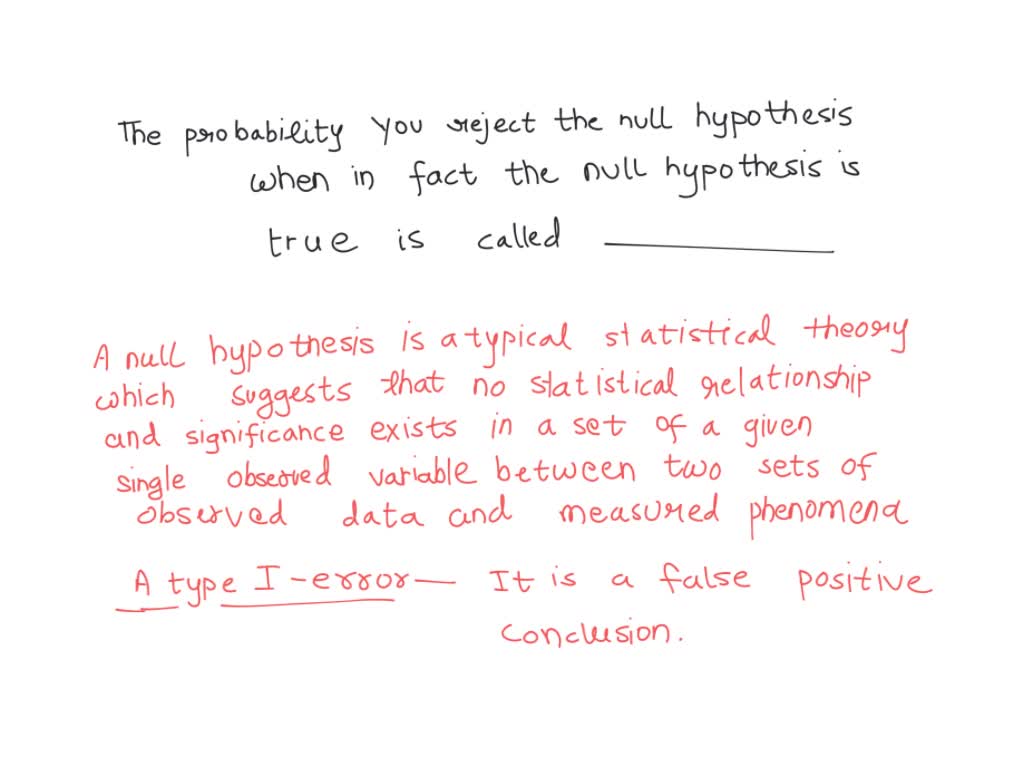 The probability you reject the null hypothesis
when in fact the null hypothesis is
true is called
A null hypothesis is a typical statistical theory
which suggests that no statistical relationship
and significance exists in a set of a given
single observed variable between two sets of
observed data and measured phenomena
A type I-error— It is a false positive
conclusion.